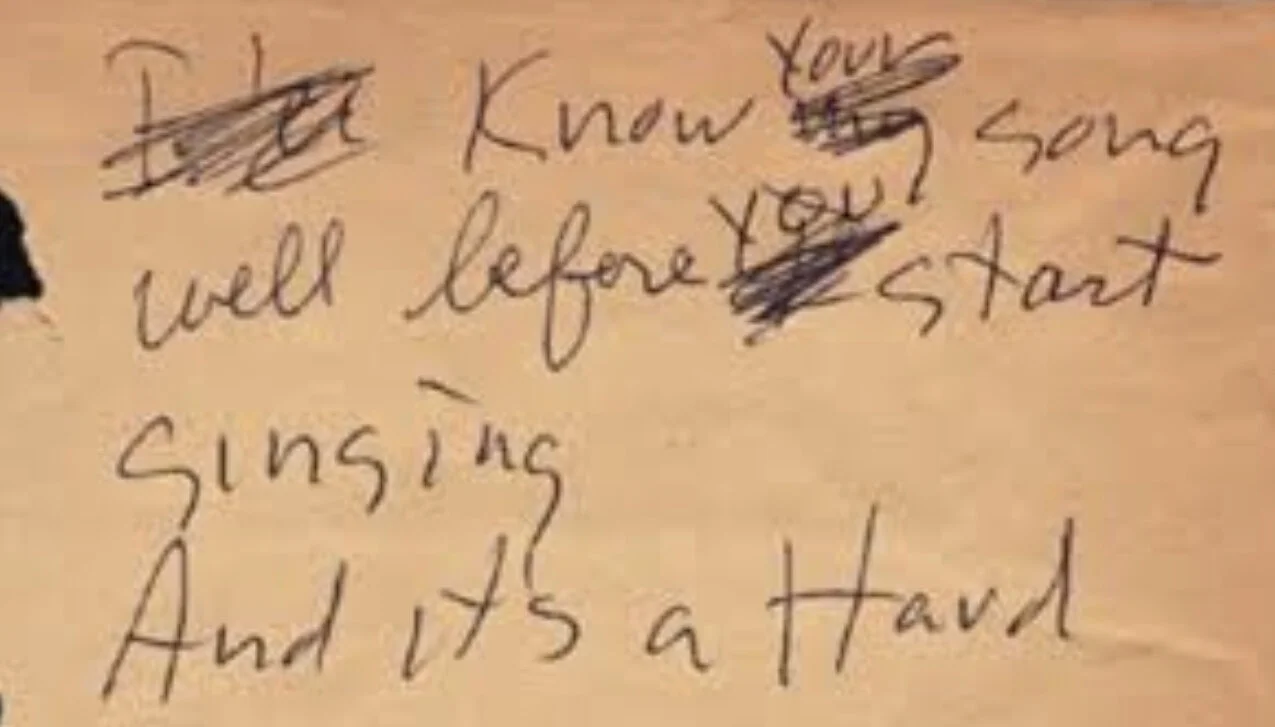 Know your song
well before you start
singing
And it's a Hard